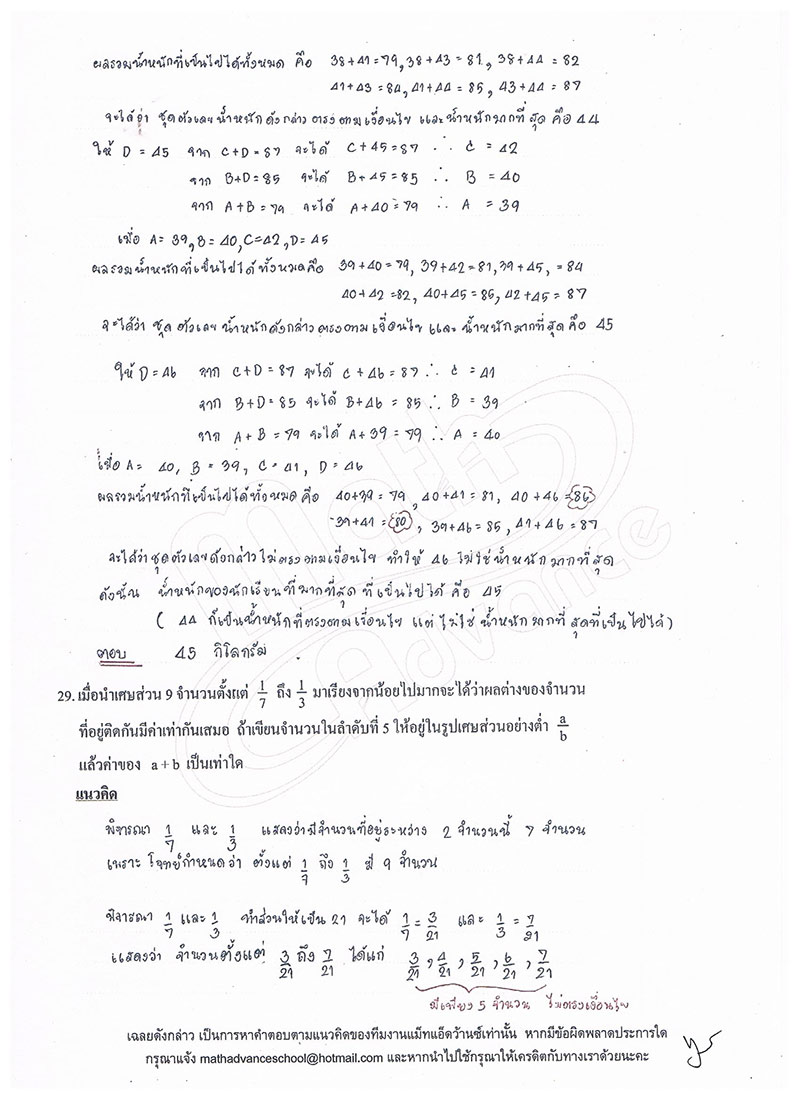 ผลรวมน้ำหนักที่เป็นไปได้ทั้งหมด คือ 38+41=79, 38+43=81, 38+44=82
41+43=84, 41+44=85, 43+44=87
จะได้ว่า ชุดตัวเลขน้ำหนักดังกล่าว ตรงตามเงื่อนไข และน้ำหนักมากที่สุด คือ 44
ให้ D = 45 จาก C+D=87 จะได้ C+45=87 ∴ C = 42
จาก B+D=85 จะได้ B+45=85 ∴ B = 40
จาก A+B=79 จะได้ A+40=79 ∴ A = 39
เมื่อ A=39, B=40, C=42, D=45
ผลรวมน้ำหนักที่เป็นไปได้ทั้งหมดคือ 39+40=79, 39+42=81, 39+45, =84
40+42=82, 40+45=85, 42+45=87
จะได้ว่า ชุดตัวเลขน้ำหนักดังกล่าวตรงตามเงื่อนไข และ น้ำหนักมากที่สุด คือ 45
ให้ D=46 จาก C+D=87 จะได้ C+46=87 ∴ C = 41
จาก B+D=85 จะได้ B+46=85 ∴ B = 39
จาก A+B=79 จะได้ A+39=79 ∴ A = 40
เมื่อ A= 40, B = 39, C=41, D=46
ผลรวมน้ำหนักที่เป็นไปได้ทั้งหมด คือ 40+39=79, 40+41=81, 40+46=86
39+41=80, 39+46=85, 41+46=87
จะได้ว่าชุดตัวเลขดังกล่าวไม่ตรงตามเงื่อนไข ทำให้ 46 ไม่ใช่น้ำหนักมากที่สุด
ดังนั้น น้ำหนักของนักเรียนที่มากที่สุด ที่เป็นไปได้ คือ 45
( 44 ก็เป็นน้ำหนักที่ตรงตามเงื่อนไข แต่ไม่ใช่น้ำหนักมากที่สุดที่เป็นไปได้)
ตอบ 45 กิโลกรัม
29. เมื่อนำเศษส่วน 9 จำนวนตั้งแต่ 1/7 ถึง 1/3 มาเรียงจากน้อยไปมากจะได้ว่าผลต่างของจำนวน
ที่อยู่ติดกันมีค่าเท่ากันเสมอ ถ้าเขียนจำนวนในลำดับที่ 5 ให้อยู่ในรูปเศษส่วนอย่างต่ำ a/b
แล้วค่าของ a+b เป็นเท่าใด
แนวคิด
พิจารณา 1/7 และ 1/3 แสดงว่ามีจำนวนที่อยู่ระหว่าง 2 จำนวนนี้ 7 จำนวน
เพราะ โจทย์กำหนดว่า ตั้งแต่ 1/7 ถึง 1/3 มี 9 จำนวน
พิจารณา 1/7 และ 1/3 ทำส่วนให้เป็น 21 จะได้ 1/7 = 3/21 และ 1/3 = 7/21
แสดงว่า จำนวนตั้งแต่ 3/21 ถึง 7/21 ได้แก่ 3/21, 4/21, 5/21, 6/21, 7/21
มีเพียง 5 จำนวน ไม่ตรงเงื่อนไข
เฉลยดังกล่าว เป็นการหาคำตอบตามแนวคิดของทีมงานแม็ทแอ็ดว้านซ์เท่านั้น หากมีข้อผิดพลาดประการใด
กรุณาแจ้ง mathadvanceschool@hotmail.com และหากนำไปใช้กรุณาให้เครดิตกับทางเราด้วยนะคะ
Math
Advance